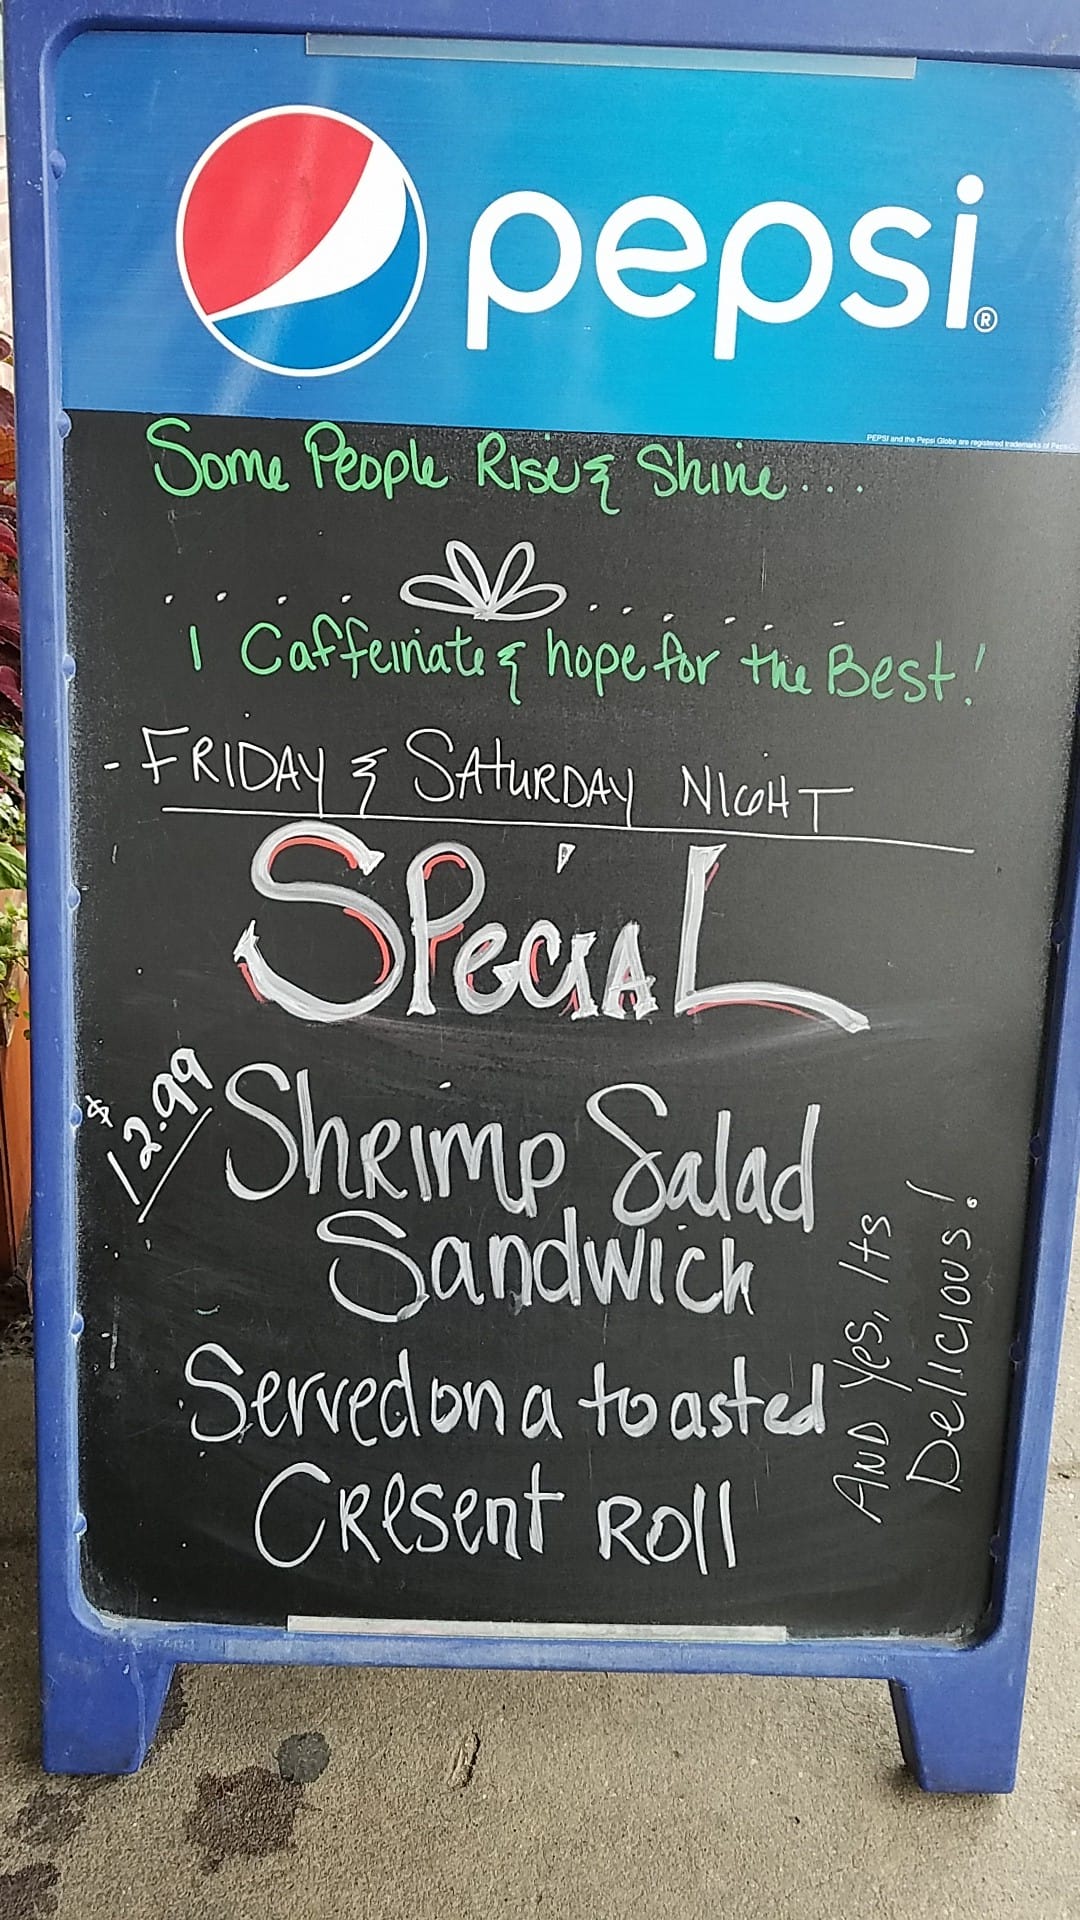 pepsi®
PEPSI and the Pepsi Globe are registered trademarks of
Some People Rise & Shine...
I Caffeinate & hope for the Best!
- FRIDAY & SATURDAY NIGHT
SPECIAL
$12.99
Shrimp Salad
Sandwich
Served on a toasted
Cresent Roll
AND Yes, Its
Delicious!